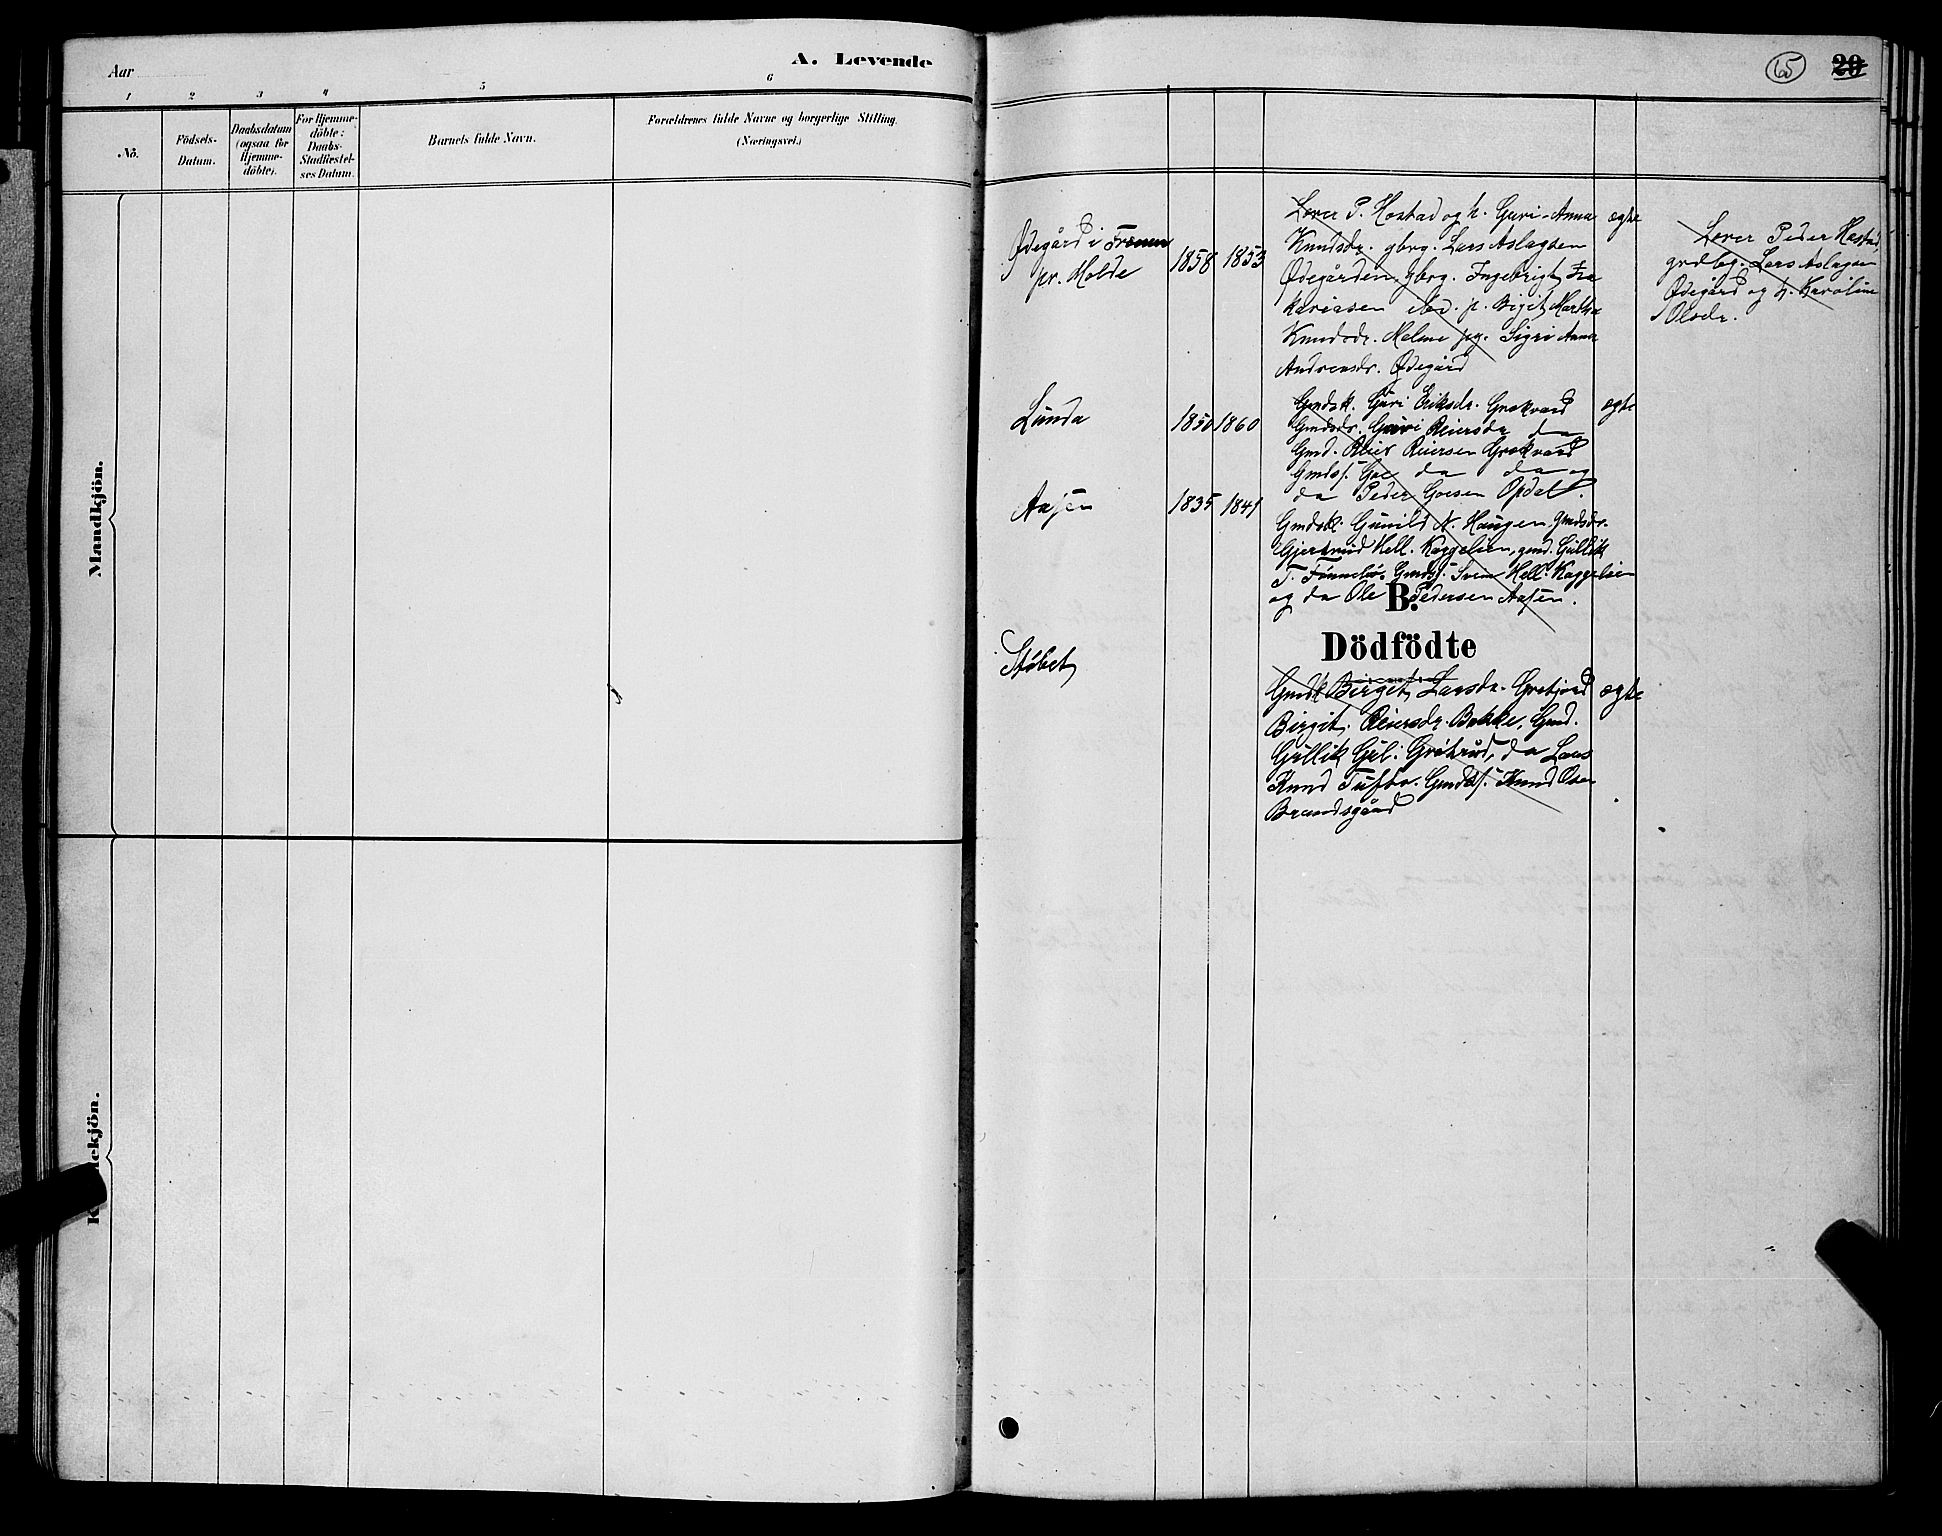 Aar
A. Levende
1 2 3 4 5 6
No.
Födsels-
Datum.
Daabsdatum
(ogsaa for
Hjemme-
döbte).
For Hjemme-
döbte:
Daabs-
Stadfæstel-
ses Datum.
Barnets fulde Navn.
Forældrenes fulde Navne og borgerlige Stilling.
(Næringsvei.)
Mandkjön.
65 20
Ødegård i Frænen
pr. Molde
1858 1853
Lærer P. Hostad og h. Guri-Anna
Knudsdr. gbrg. Lars Aslagsen
Ødegården, gbrg. Ingebrigt Za
kariasen ibd. p. Birgit Martha
Knudsdr. Melme pg. Sigri Anna
Andreasdr. Ødegård
ægte
Lærer Peder Hostad
grdbg. Lars Aslagsen
Ødegård og h. Karoline
Olsdr.
Lunda
1850 1860
Gmdsk. Guri Eriksdr. Grøkvard
Gmdsdr. Guri Reiersdr da
Gmd. Reier Reiersen Grøkvard
Gmdss. Goe da da og
da Peder Goesen Opdal.
ægte
Aasen
1835 1841
Gmdsk. Gunild N. Haugen, gmdsdr.
Gjertrud Hell. Kaggelien, gmd. Gullik
T. Gmdss. Svein Hell. Kaggelien
og da Ole Pedersen Aasen.
B.
Dödfödte
Støbet
Gmdk Birget Larsdr. Grøtjord
Birgit Reiersdr. Bakke, Gmd.
Gullik Gul. Grøtrud, da Lars
Knud Tufto. Gmdss. Knud Olsen
Brandsgård
ægte